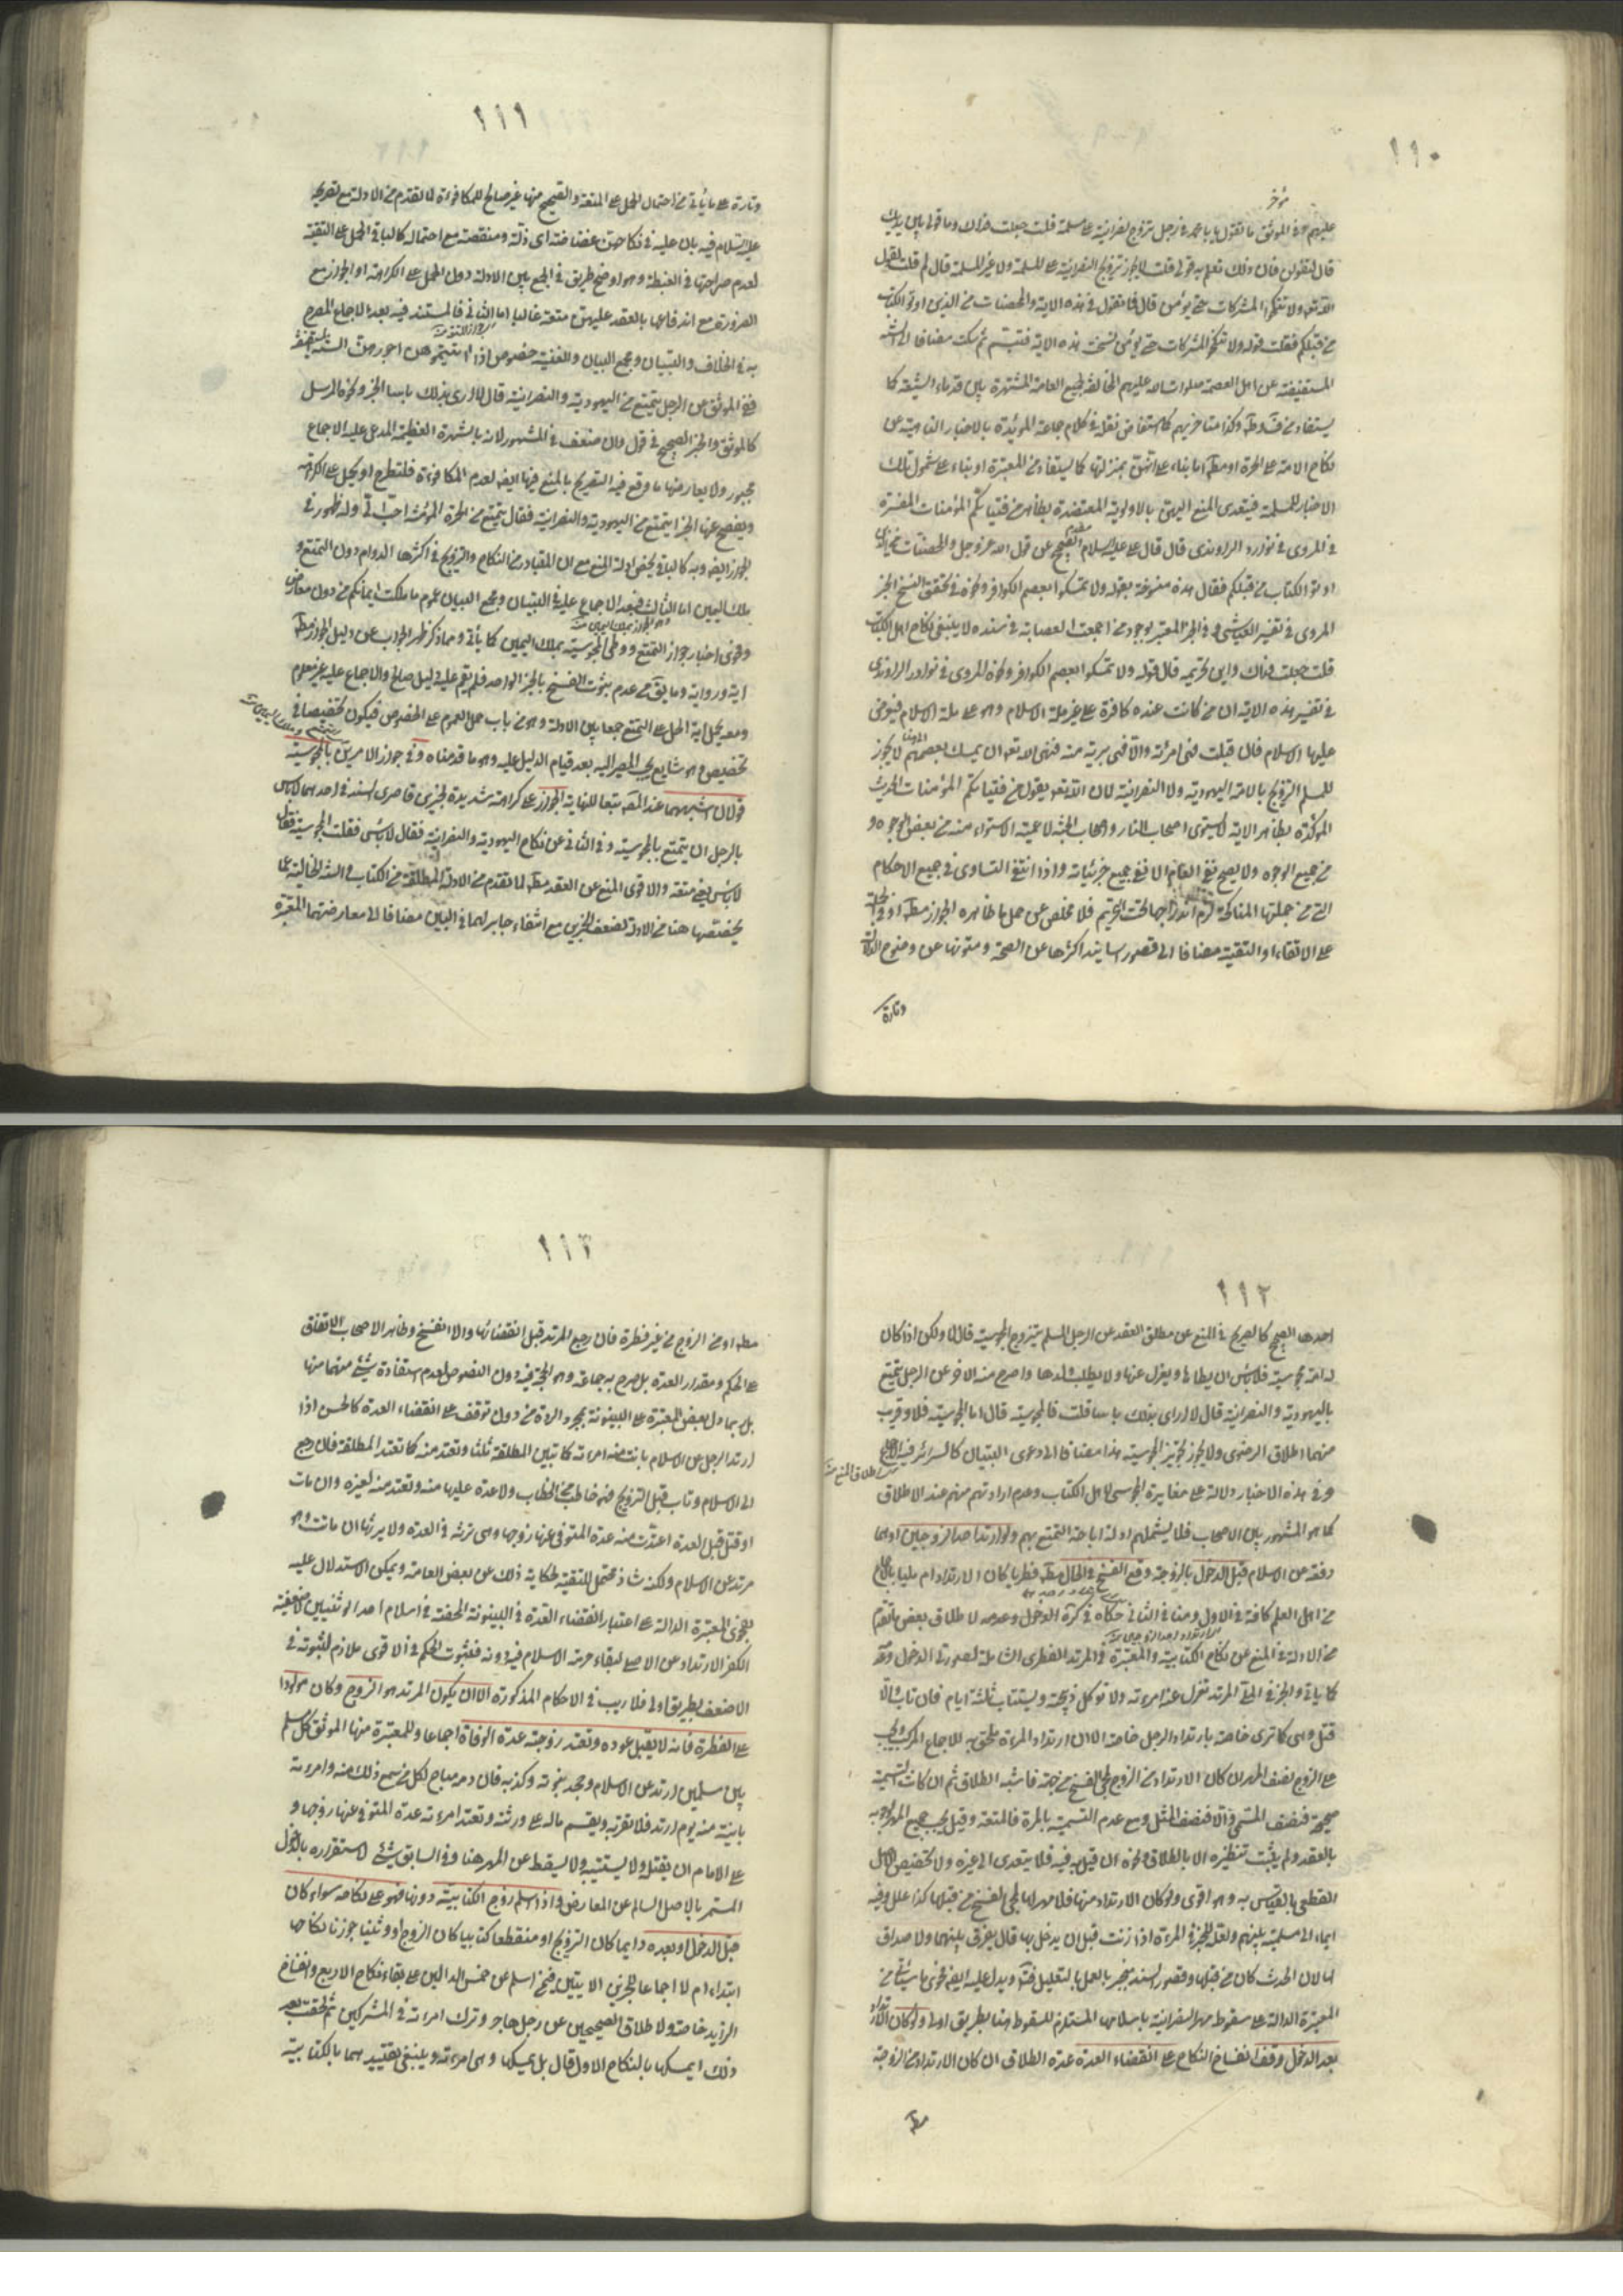 ١١٠
عليهم ففى الموثق ما تقول يا با محمد فى رجل تزوج نصرانية على مسلمة قلت جعلت فداك وما قولى بين يديك
قال لتقولن فان ذلك تعلم به قولى قلت لا يجوز تزويج النصرانية على المسلمة ولا غير المسلمة قال لم قلت لقول
الله تعه ولا تنكحوا المشركات حتى يؤمن قال فما تقول فى هذه الاية والمحصنات من الذين اوتوا الكتاب
من قبلكم فقلت قوله ولا تنكحوا المشركات حتى يؤمن نسخت هذه الاية فتبسم ثم سكت مضافا الى
المستفيضة عن اهل العصمة صلوات الله عليهم المخالفة لجميع العامة المشتهرة بين قدماء الشيعة كما
يستفاد من وكذا متاخريهم كما استفاض نقله فى كلام جماعة المؤيدة بالاخبار الناهية عن
نكاح الامة على الحرة او مطه اما بناء على انهن بمنزلتها كما يستفاد من المعتبرة او بناء على شمول تلك
الاخبار للمسلمة فيتعدى المنع اليهن بالاولوية المعتضدة بظاهر من فتياتكم المؤمنات المفسرة
فى المروى فى نوادر الراوندى قال قال على عليه السلام عن قول الله عز وجل والمحصنات من الذين
اوتوا الكتاب من قبلكم فقال هذه منسوخة بقوله ولا تمسكوا بعصم الكوافر ونحوه فى تحقق النسخ الخبر
المروى فى تفسير العياشى وفى الخبر المعتبر لوجود من اجمعت العصابة فى سنده لا ينبغى نكاح اهل الكتاب
قلت جعلت فداك واين تحريمه قال قوله ولا تمسكوا بعصم الكوافر ونحوه المروى فى نوادر الراوندى
فى تفسير هذه الاية ان من كانت عنده كافرة على غير ملة الاسلام وهو على ملة الاسلام فليعرض
عليها الاسلام فان قبلت فهى امرئته والا فهى برية منه فنهى الله تعه ان يمسك بعصمهم لا يجوز
للمسلم التزويج بالامة اليهودية ولا النصرانية لان الله تعه يقول من فتياتكم المؤمنات الحديث
المؤكدة بظاهر الاية لا يستوى اصحاب النار واصحاب الجنة لاعمية الاستواء منه من بعض الوجوه و
من جميع الوجوه ولا يصح نفى العام الا نفى جميع جزئياته واذا انتفى التساوى فى جميع الاحكام
التى من جملتها المناكحة لزم اندراجها تحت التحريم فلا مخلص عن حمل ما ظاهره الجواز مطه او فى الجملة
على الاتقاء او التقية مضافا الى قصور اسانيد اكثرها عن الصحة ومتونها عن وضوح الدلالة
وتارة
١١١
وتارة على ما يأتى من احتمال الحمل على المتعة والصحيح منها غير صالح للمكافوءة لما تقدم من الادلة مع تصريحه
عليه السلام فيه بان عليه فى نكاحهن غضاضة اى ذلة ومنقصة مع احتماله كالباقى الحمل على التقية
لعدم صراحتها فى الغبطة وهو اوضح طريق فى الجمع بين الادلة دون الحمل على الكراهة او الجواز مع
الضرورة مع اندفاعها بالعقد عليهن متعة غالبا اما الثانى فالمستند فيه بعد الاجماع المصرح
به فى الخلاف والتبيان ومجمع البيان والغنية خصوص اذا اتيتموهن اجورهن السنة المستفيضة
ففى الموثق عن الرجل يتمتع من اليهودية والنصرانية قال لا ارى بذلك باسا الخبر ونحوه المرسل
كالموثق والخبر الصحيح فى قول وان ضعف فى المشهور لانه بالشهرة العظيمة المدعى عليه الاجماع
مجبور ولا يعارضها ما وقع فيه التصريح بالمنع فيها ايضه لعدم المكافوءة فلتطرح او يحمل على الكراهة
ويفصح عنها الخبر ايتمتع من اليهودية والنصرانية فقال يتمتع من الحرة المؤمنة احب الى وله ظهور فى
الجواز ايضه وبه كالباقى يخص ادلة المنع مع ان المتبادر من النكاح والتزويج فى اكثرها الدوام دون التمتع و
ملك اليمين اما الثالث فبعد الاجماع عليه فى التبيان ومجمع البيان عموم ما ملكت ايمانكم من دون معارض
وهو الجواز بملك اليمين منه
وفحوى اخبار جواز التمتع ووطى المجوسية بملك اليمين كما يأتى ومما ذكر ظهر الجواب عن دليل الجواز مطه
اية ورواية وما يق من عدم ثبوت النسخ بالخبر الواحد فلم يقم عليه دليل صالح والاجماع عليه غير معلوم
ومعه يحمل اية الحل على التمتع جمعا بين الادلة وهو من باب حمل العموم على الخصوص فيكون تخصيصا فى
تخصيص وهو شايع يجب المصير اليه بعد قيام الدليل عليه وهو ما قدمناه وفى جواز الامرين بالمجوسية
قولان اشبههما عند المصه تبعا للنهاية الجواز على كراهة شديدة لخبرين قاصرى السند فى احدهما لا باس
بالرجل ان يتمتع بالمجوسية وفى الثانى عن نكاح اليهودية والنصرانية فقال لا بأس فقلت المجوسية فقال
لا بأس يعنى متعة والاقوى المنع عن العقد مطه لما تقدم من الادلة المطلقة من الكتاب والسنة الخالية عما
يخصصها هنا من الادلة لضعف الخبرين مع انتفاء جابر لهما فى البين مضافا الى معارضتهما المعتبرة
١١٢
احدها الصحيح كالصريح فى المنع عن مطلق العقد عن الرجل المسلم يتزوج المجوسية قال لا ولكن اذا كان
له امة مجوسية فلا بأس ان يطاها ويعزل عنها ولا يطلب ولدها واصرح منه الاخر عن الرجل يتمتع
باليهودية والنصرانية قال لا ارى بذلك باسا قلت فالمجوسية قال اما المجوسية فلا وقريب
منهما اطلاق الرضوى ولا يجوز تزويج المجوسية هذا مضافا الى دعوى التبيان كالسرائر فيه الاجماع
وفى هذه الاخبار دلالة على مغايرة المجوسى لاهل الكتاب وعدم ارادتهم منهم عند الاطلاق
كما هو المشهور بين الاصحاب فلا يشملهم ادلة اباحة التمتع بهم ولو ارتد احد الزوجين او هما
دفعة عن الاسلام قبل الدخول بالزوجة وقع الفسخ فى الحال مطه فطريا كان الارتداد ام مليا باجماع
من اهل العلم كافة فى الاول ومنا فى الثانى حكاه فى كرة الدخول وعدمه لاطلاق بعض ما تقدم
من الادلة فى المنع عن نكاح الكتابية والمعتبرة فى المرتد الفطرى الشاملة لصورتى الدخول وعدمه
كما ياتى والخبر فى الملى المرتد تعزل عنه امرءته ولا توكل ذبيحته ويستتاب ثلثة ايام فان تاب والا
قتل وهى كما ترى خاصة بارتداد الرجل خاصة الا ان ارتداد المرءة ملحق به للاجماع المركب ويجب
على الزوج نصف المهر ان كان الارتداد من الزوج لمجئ الفسخ من جهته فاشبه الطلاق ثم ان كانت التسمية
صحيحة فنصف المسمى والا فنصف المثل ومع عدم التسمية بالمرة فالمتعة وقيل يجب جميع المهر لوجوبه
بالعقد ولم يثبت تنظيره الا بالطلاق ونحوه ان قيل به فيه فلا يتعدى الى غيره ولا تخصيص للاصل
القطعى بالقياس به وهو اقوى ولو كان الارتداد منها فلا مهر لها لمجئ الفسخ من قبلها كذا علل وفيه
ايماء الى مسلميته بينهم ولعله للخبر فى المرءة اذا زنت قبل ان يدخل بها قال يفرق بينهما ولا صداق
لها لان الحدث كان من قبلها وقصور السند ينجبر بالعمل بالتعليل فت ويدل عليه ايضه فحوى ما سيأتى من
المعتبرة الدالة على سقوط مهر النصرانية باسلامها المستلزم للسقوط هنا بطريق اولى ولو كان الارتداد
بعد الدخول وقف انفساخ النكاح على انقضاء العدة عدة الطلاق ان كان الارتداد من الزوجة
مطه
١١٣
مطه او من الزوج من غير فطرة فان رجع المرتد قبل انقضائها والا انفسخ وظاهر الاصحاب الاتفاق
على الحكم ومقدار العدة بل صرح به جماعة وهو الحجة فيه دون النصوص لعدم استفادة شئ منهما منها
بل ربما دل بعض المعتبرة على البينونة بمجرد الردة من دون توقف على انقضاء العدة كالحسن اذا
ارتد الرجل عن الاسلام بانت منه امرءته كما تبين المطلقة ثلثا وتعتد منه كما تعتد المطلقة فان رجع
الى الاسلام وتاب قبل التزويج فهو خاطب من الخطاب ولا عدة عليها منه وتعتد منه لغيره وان مات
او قتل قبل العدة اعتدت منه عدة المتوفى عنها زوجها وهى ترثه فى العدة ولا يرثها ان ماتت وهو
مرتد عن الاسلام ولكنه شاذ محتمل للتقية لحكاية ذلك عن بعض العامة ويمكن الاستدلال عليه
بفحوى المعتبرة الدالة على اعتبار انقضاء العدة فى البينونة المحضة فى اسلام احد الوثنيين لاضعفية
الكفر الارتدادى عن الاصلى لبقاء حرمة الاسلام فيه دونه فثبوت الحكم فى الاقوى ملازم لثبوته فى
الاضعف بطريق اولى فلا ريب فى الاحكام المذكورة الا ان يكون المرتد هو الزوج وكان مولودا
على الفطرة فانه لا يقبل عوده وتعتد زوجته عدة الوفاة اجماعا وللمعتبرة منها الموثق كل مسلم
بين مسلمين ارتد عن الاسلام وجحد بنبوته وكذبه فان دمه مباح لكل من سمع ذلك منه وامرءته
باينة منه يوم ارتد فلا تقربه ويقسم ماله على ورثته وتعتد امرءته عدة المتوفى عنها زوجها و
على الامام ان يقتله ولا يستتيبه ولا يسقط عن المهر هنا وفى السابق شئ لاستقراره بالدخول
المستمر بالاصل السالم عن المعارض واذا اسلم زوج الكتابية دونها فهو على نكاحه سواء كان
قبل الدخول او بعده دايما كان التزويج او منقطعا كتابيا كان الزوج او وثنيا جوزنا نكاحها
ابتداء ام لا اجماعا للخبرين الاتيين فيمن اسلم عن خمس الدالين على بقاء نكاح الاربع وانفساخ
الزايد خاصة ولاطلاق الصحيحين عن رجل هاجر وترك امرءته فى المشركين ثم لحقت بعد
ذلك ايمسكها بالنكاح الاول قال بل يمسكها وهى امرءته وينبغى تقييدهما بالكتابية